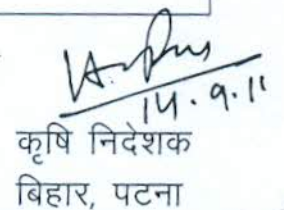 14.9.11
कृषि निदेशक
बिहार, पटना